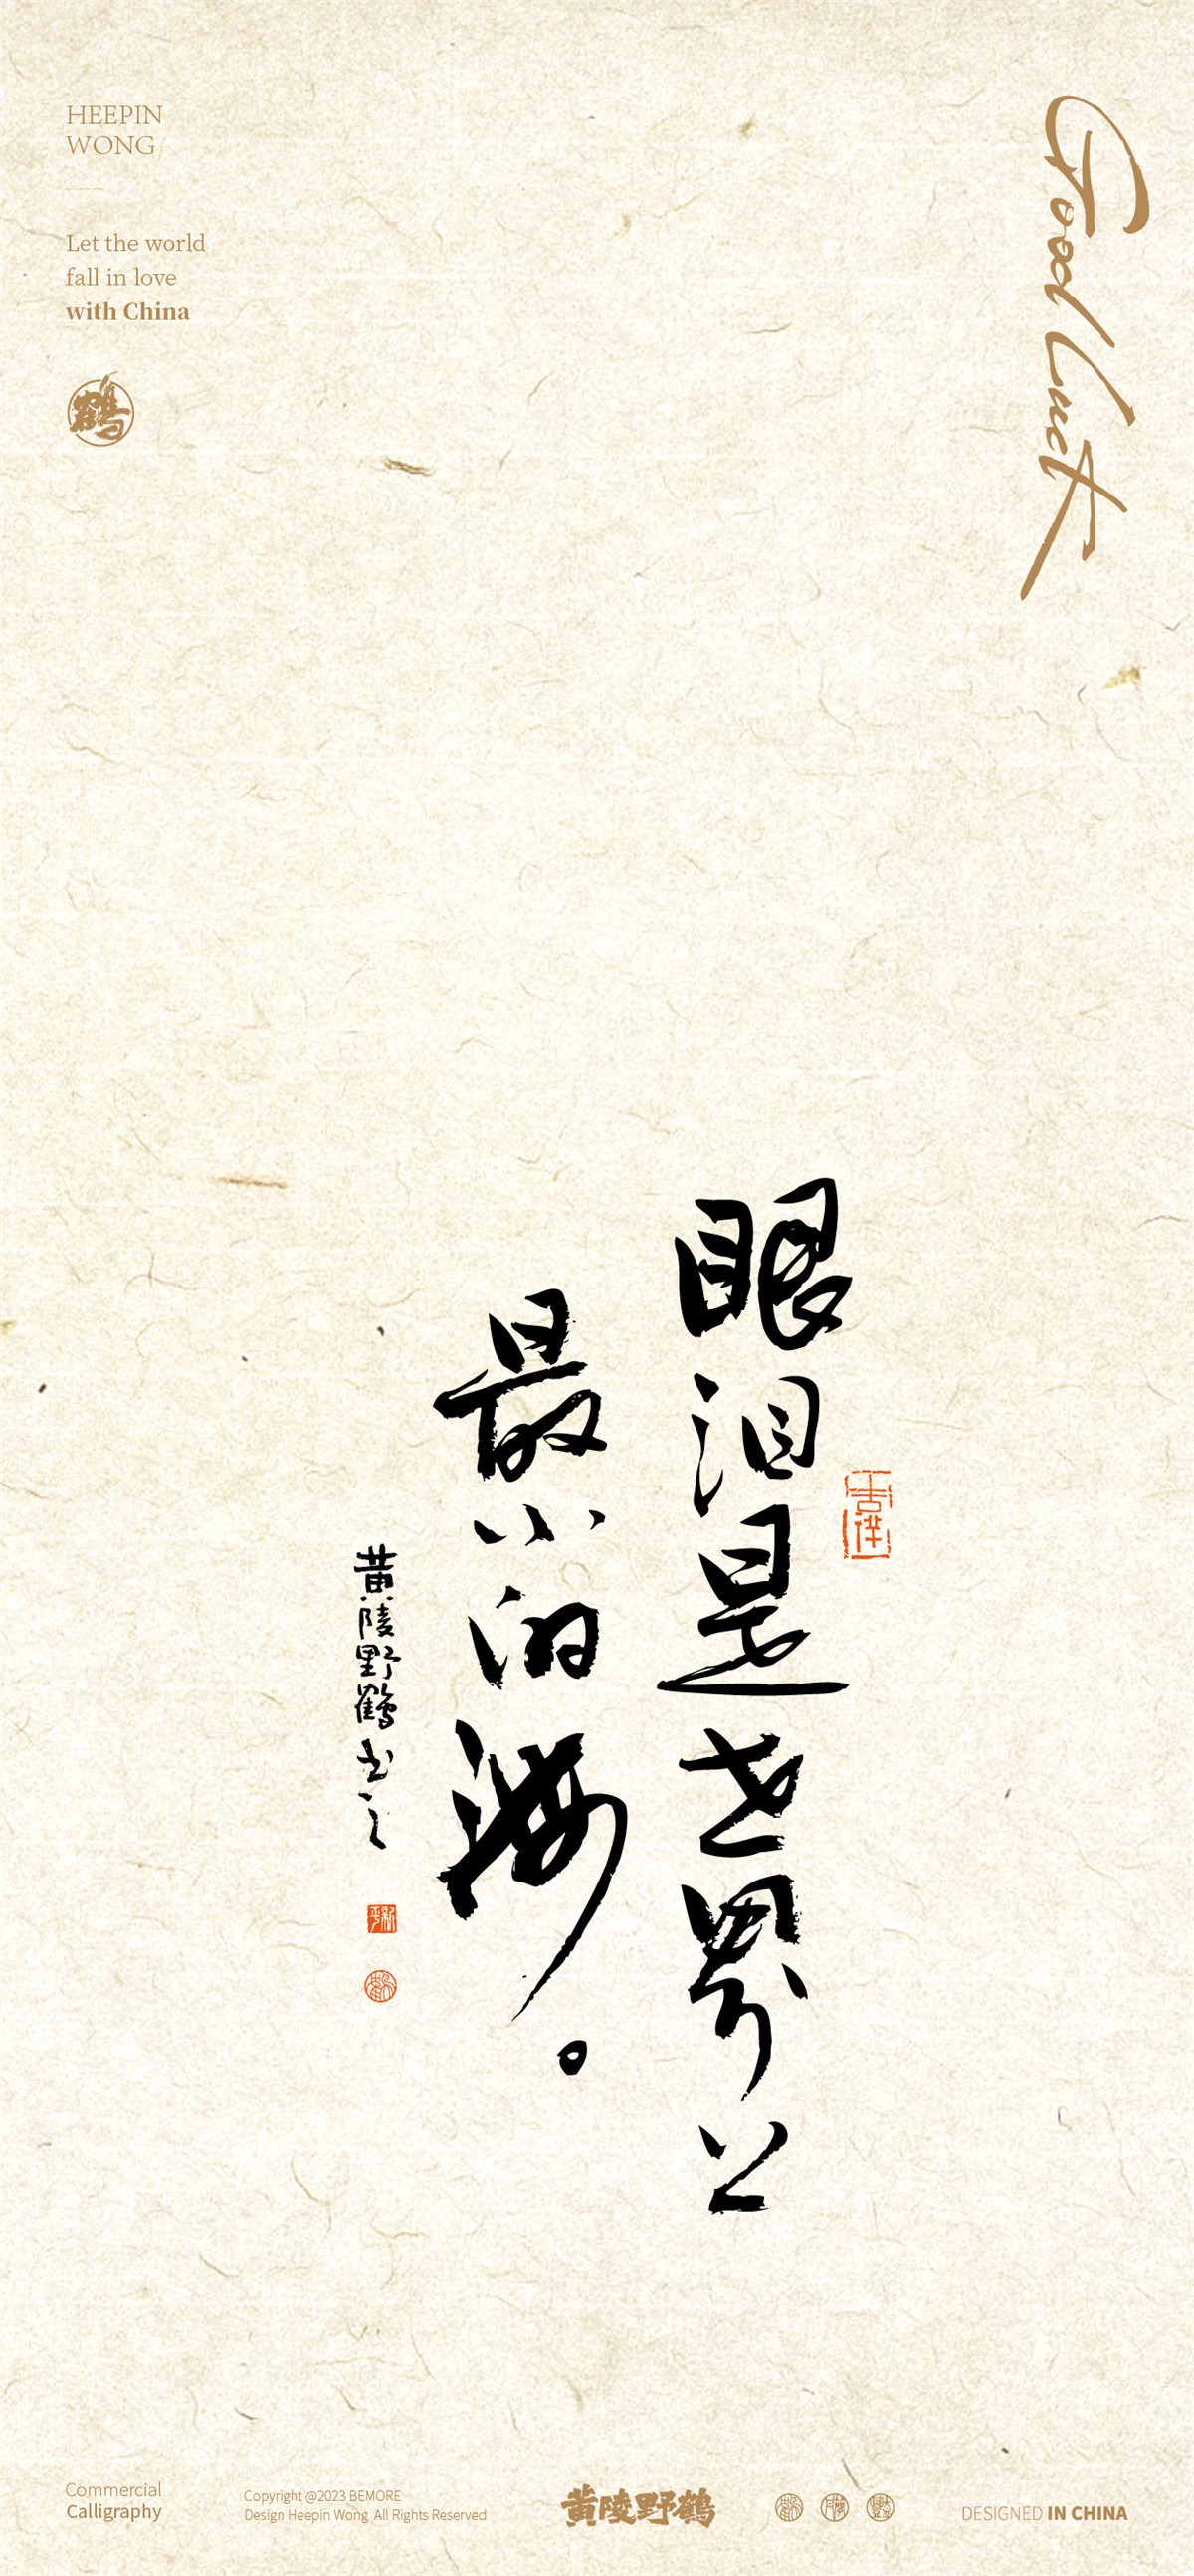 HEEPIN
WONG
Let the world
fall in love
with China
鶴
Good luck
眼泪是世界上
最小的海。
黄陵野鹤书之
Commercial
Calligraphy
Copyright @2023 BEMORE
Design Heepin Wong All Rights Reserved
黄陵野鶴
DESIGNED IN CHINA